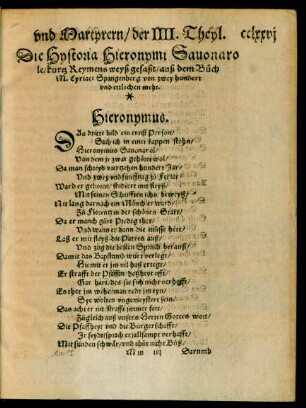 vnd Martyrern / der IIII. Theyl. cclxxvj
Die Hystoria Hieronymi Sauonaro
le / kurtz Reymens weyß gefaßt / auß dem Büch
M. Cyriaci Spangenberg von zwey hundert
vnd etlichen mehr.
*
Hieronymus.
Das dritte bild ein ernst Person /
Sich ich in einer kappen stohn /
Hieronymus Sauonarol /
Von dem jr zwar gehöret wol /
Da man schreyb viertzehen hundert Jar
Vnd zwey vnd fünfftzig zů Ferrar
Ward er geboren / studiert mit fleyß /
Mit seinen Schrifften ichs beweyß /
Nit lang darnach ein Münch er ward /
Zů Florentz in der schönen Statt /
Da er manch gůte Predig thet /
Vnd wann er dann die müsse hett /
Laß er mit fleyß die Patres auß /
Vnd zog die besten Sprüch herauß /
Damit das Bapstumb wurd verlegt /
Hiemit er jm vil haß erregt /
Er strafft der Pfaffen boßheyt offt /
Gar hart / des sie sich nicht verhofft /
Es thet jm wehe / man redt jm eyn /
Sye wolten vngemeystert sein /
Das acht er nit / straffte jmmer fort /
Zůgleich auß vnsers Herren Gottes wort /
Die Pfaffheyt vnd die Burgerschafft /
Jr seyd spracht er all sampt verhafft /
Mit sünden schwär / vnd thůt nicht Bůß /
Mm iiij Darumb